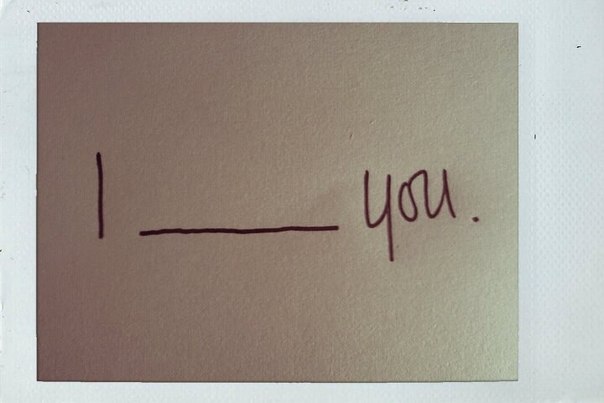 I ______ you.